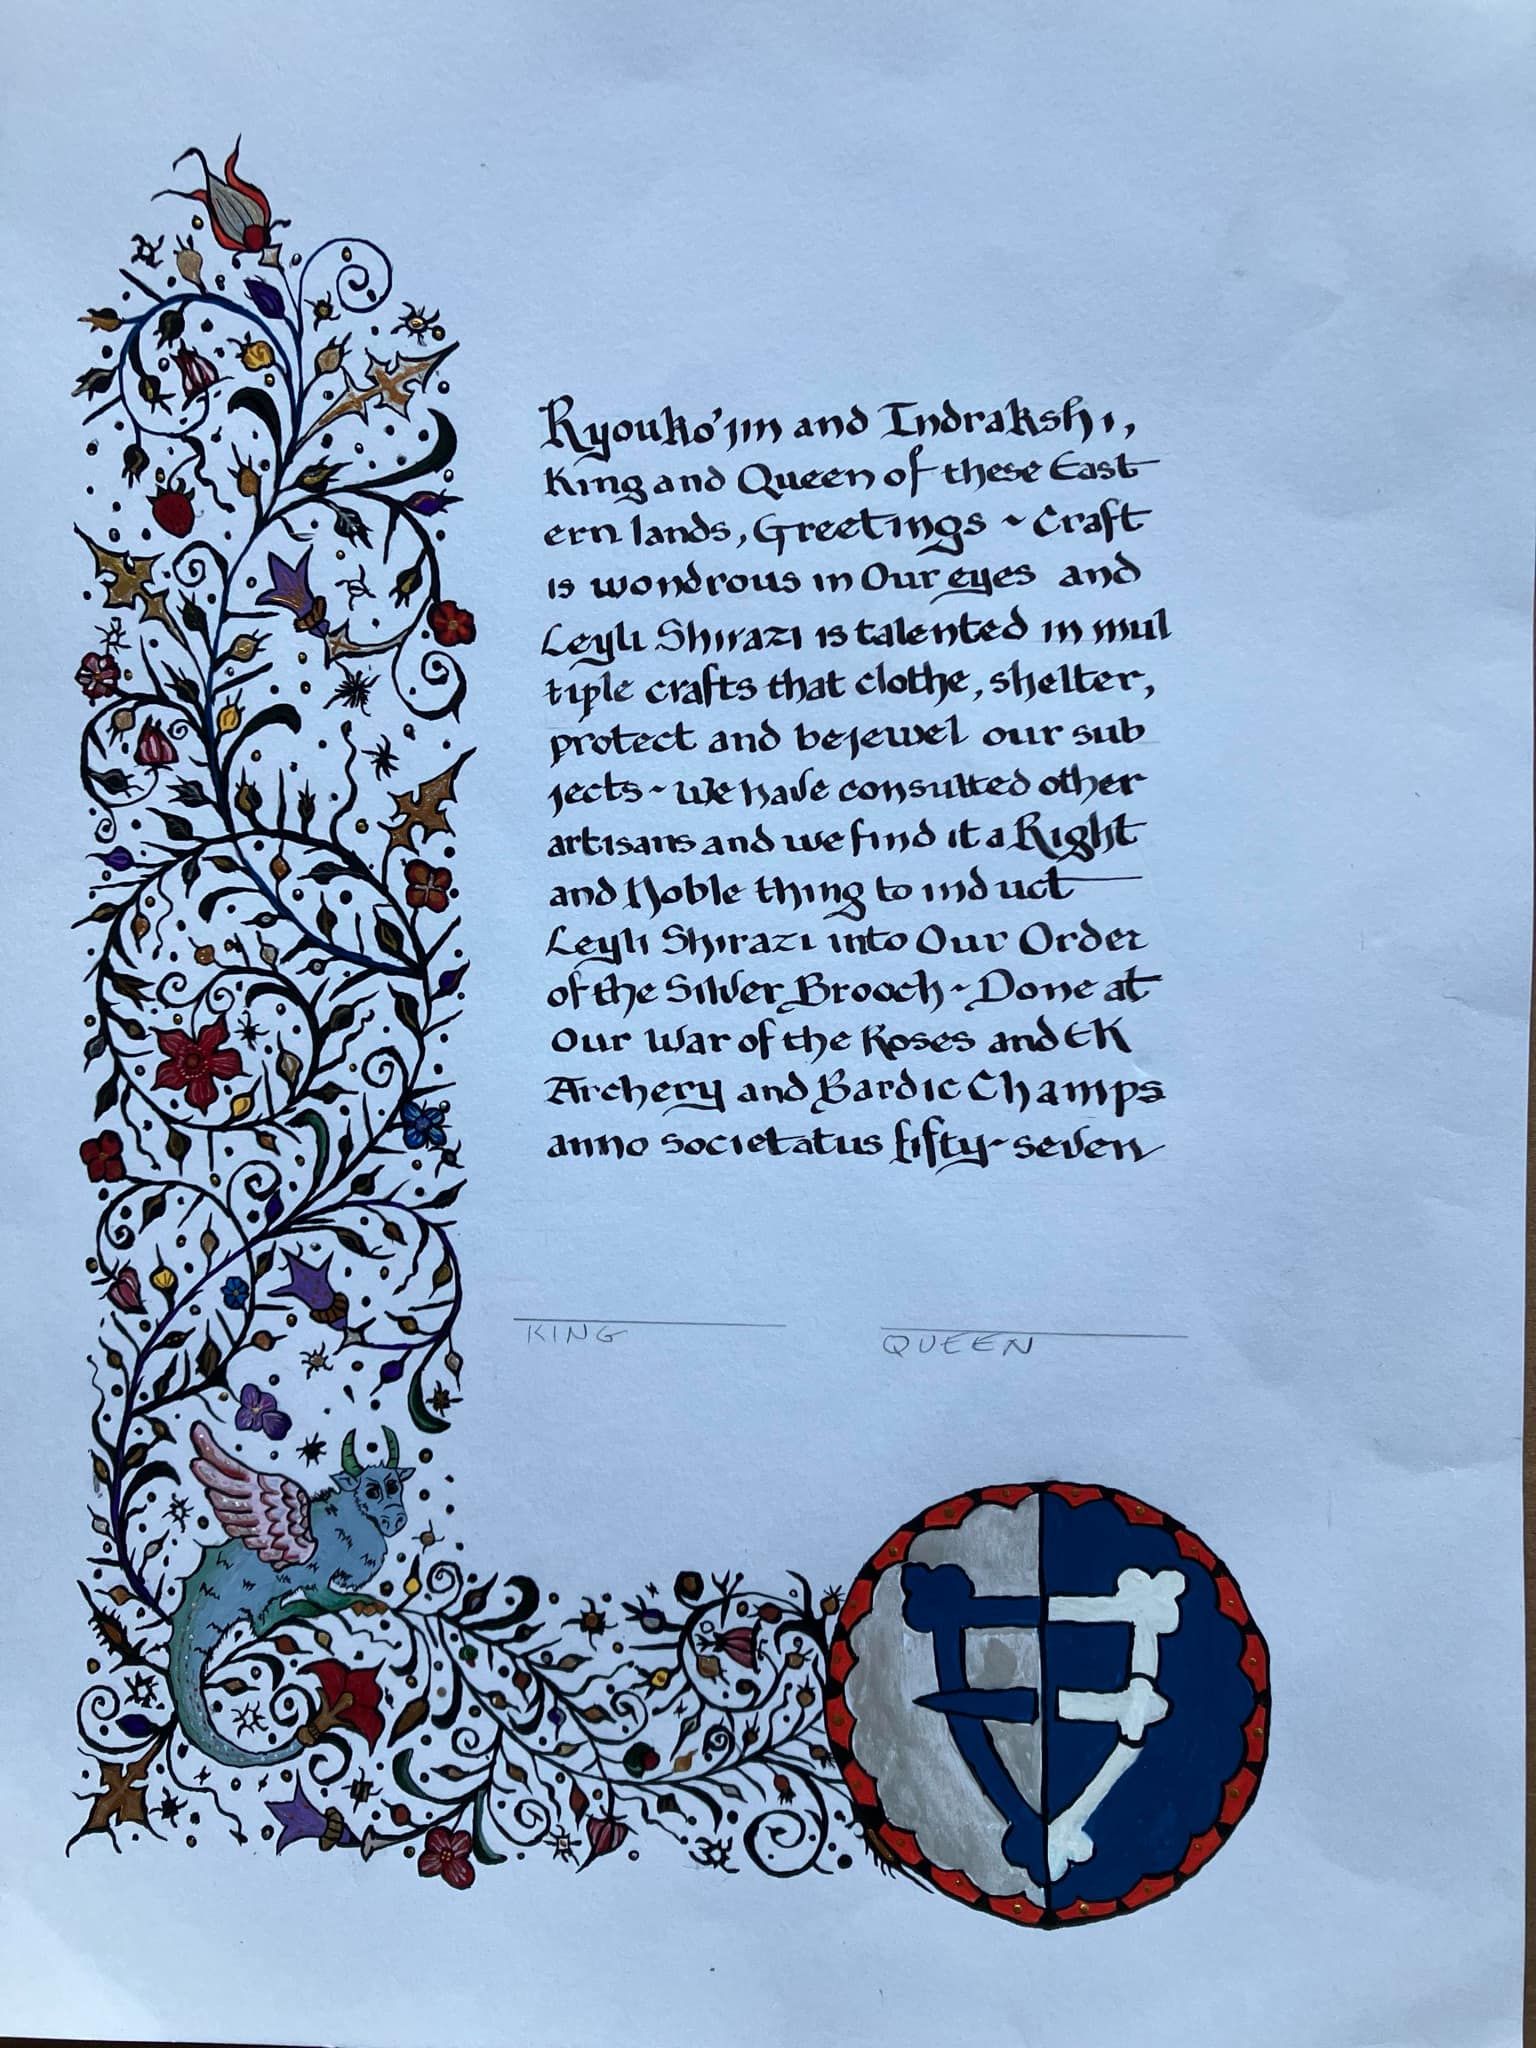 Ryouko'jin and Indrakshi,
King and Queen of these East
ern lands, Greetings ~ Craft
is wondrous in Our eyes and
Leyli Shirazi is talented in mul
tiple crafts that clothe, shelter,
protect and bejewel our sub
jects ~ We have consulted other
artisans and we find it a Right
and Noble thing to induct
Leyli Shirazi into Our Order
of the Silver Brooch ~ Done at
Our War of the Roses and EK
Archery and Bardic Champs
anno societatus fifty-seven
KING QUEEN